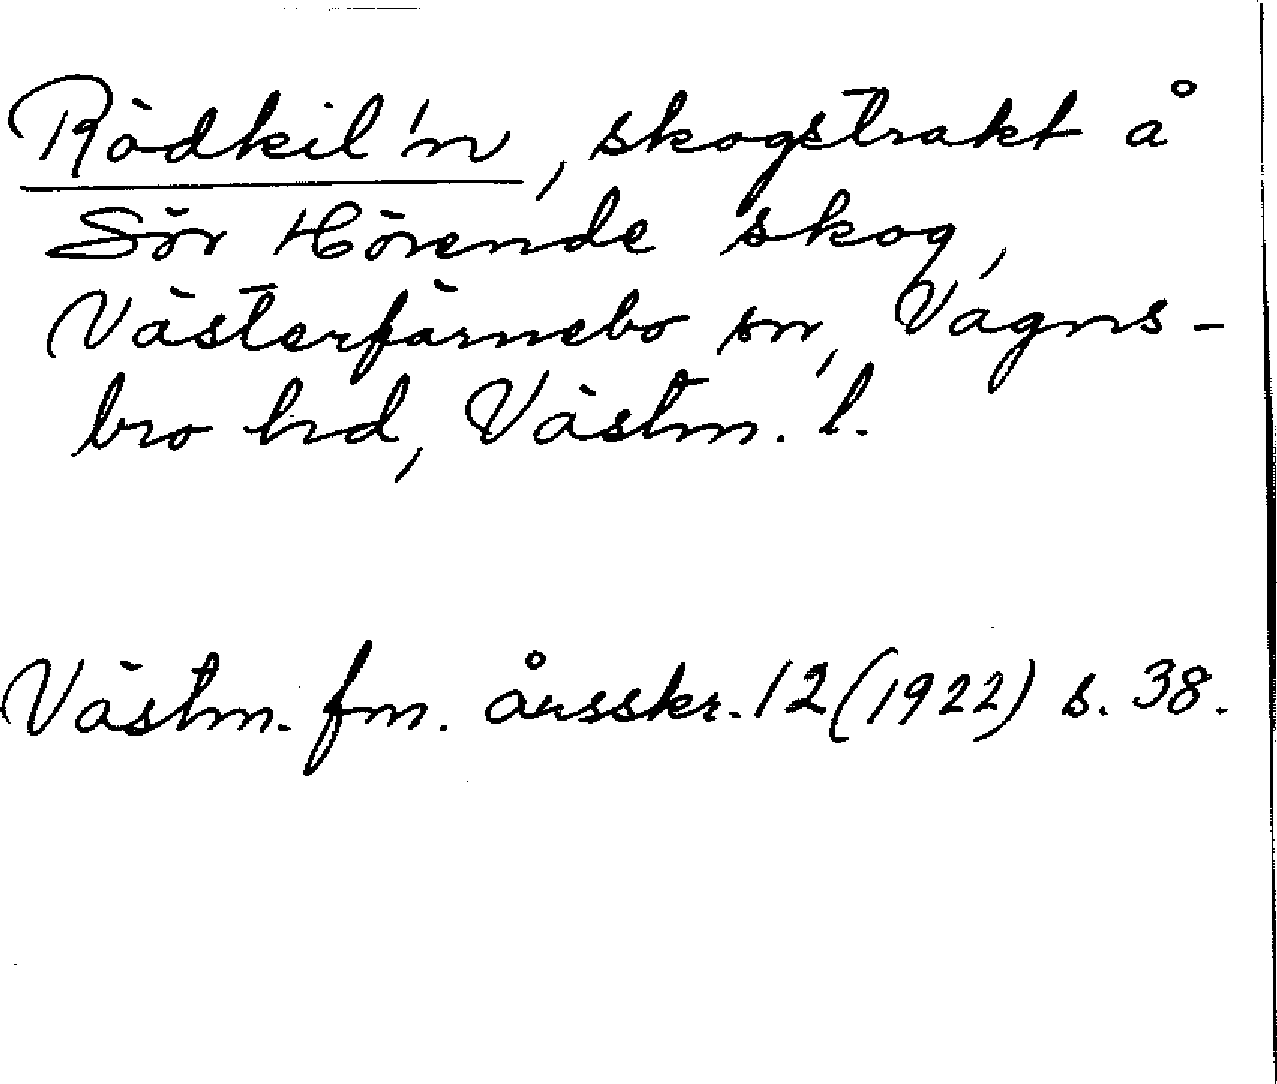 Rödkil'n, skogstrakt å
Sör Hörende skog,
Västerfärnebo sn, Vagns-
bro hd, Västm. l.
Västm. fm. årsskr. 12 (1922) s. 38.